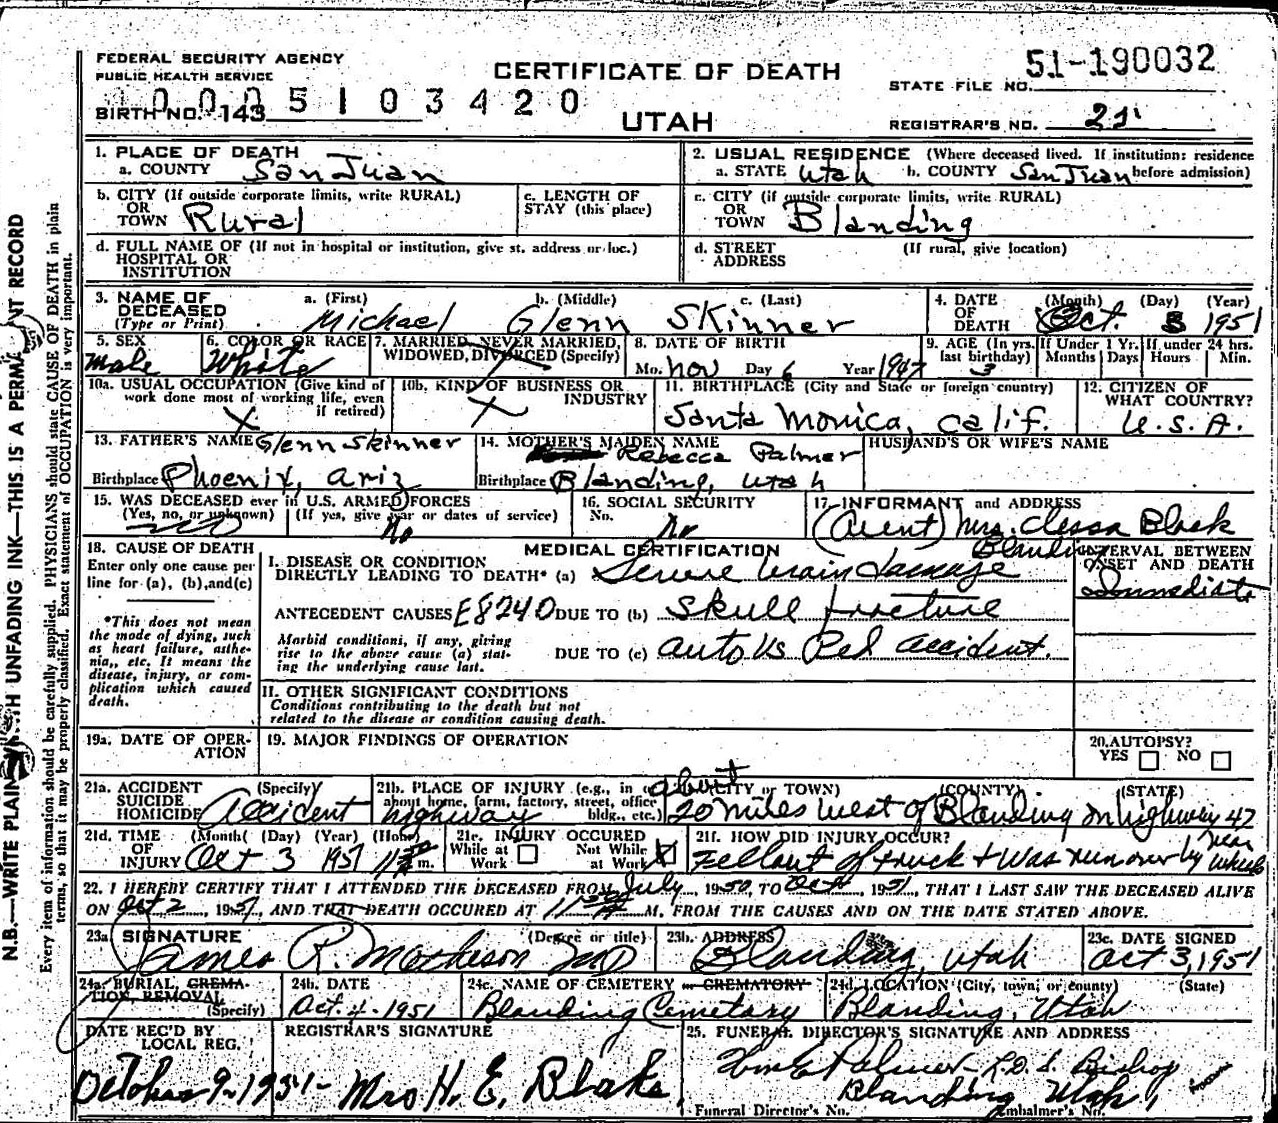 FEDERAL SECURITY AGENCY
PUBLIC HEALTH SERVICE
CERTIFICATE OF DEATH
STATE FILE NO. 51-190032
1 0 0 0 5 1 0 3 4 2 0
BIRTH NO. 143
UTAH
REGISTRAR'S NO. 21
1. PLACE OF DEATH
a. COUNTY San Juan
2. USUAL RESIDENCE (Where deceased lived. If institution: residence
a. STATE Utah b. COUNTY San Juan before admission)
b. CITY (If outside corporate limits, write RURAL)
OR
TOWN Rural
c. LENGTH OF
STAY (this place)
c. CITY (if outside corporate limits, write RURAL)
OR
TOWN Blanding
d. FULL NAME OF (If not in hospital or institution, give st. address or loc.)
HOSPITAL OR
INSTITUTION
d. STREET (If rural, give location)
ADDRESS
3. NAME OF DECEASED
(Type or Print)
a. (First) b. (Middle) c. (Last)
Michael Glenn Skinner
4. DATE OF DEATH (Month) (Day) (Year)
Oct. 3 1951
5. SEX
male
6. COLOR OR RACE
White
7. MARRIED, NEVER MARRIED,
WIDOWED, DIVORCED (Specify)
8. DATE OF BIRTH
Mo. Nov Day 6 Year 1947
9. AGE (In yrs. last birthday)
3
If Under 1 Yr. Months Days
If under 24 hrs. Hours Min.
10a. USUAL OCCUPATION (Give kind of
work done most of working life, even
if retired) X
10b. KIND OF BUSINESS OR
INDUSTRY X
11. BIRTHPLACE (City and State or foreign country)
Santa Monica, Calif.
12. CITIZEN OF
WHAT COUNTRY?
U.S.A.
13. FATHER'S NAME Glenn Skinner
Birthplace Phoenix, Ariz
14. MOTHER'S MAIDEN NAME
Rebecca Palmer
Birthplace Blanding, Utah
HUSBAND'S OR WIFE'S NAME
15. WAS DECEASED ever in U.S. ARMED FORCES
(Yes, no, or unknown) (If yes, give war or dates of service)
no No
16. SOCIAL SECURITY
No. No
17. INFORMANT and ADDRESS
(Aunt) Mrs. Clessa Black
Blanding
18. CAUSE OF DEATH
Enter only one cause per
line for (a), (b), and (c)
*This does not mean
the mode of dying, such
as heart failure, asthe-
nia,, etc. It means the
disease, injury, or com-
plication which caused
death.
MEDICAL CERTIFICATION
I. DISEASE OR CONDITION
DIRECTLY LEADING TO DEATH* (a) Severe brain damage
INTERVAL BETWEEN
ONSET AND DEATH
Immediate
ANTECEDENT CAUSES E8240 DUE TO (b) skull fracture
Morbid conditions, if any, giving
rise to the above cause (a) stat-
ing the underlying cause last.
DUE TO (c) auto vs Ped accident.
II. OTHER SIGNIFICANT CONDITIONS
Conditions contributing to the death but not
related to the disease or condition causing death.
19a. DATE OF OPER-
ATION
19. MAJOR FINDINGS OF OPERATION
20. AUTOPSY?
YES NO
21a. ACCIDENT (Specify)
SUICIDE
HOMICIDE Accident
21b. PLACE OF INJURY (e.g., in or
about home, farm, factory, street, office
bldg., etc.) highway
(CITY or TOWN) (COUNTY) (STATE)
about
20 miles west of Blanding on highway 47
21d. TIME (Month) (Day) (Year) (Hour)
OF
INJURY Oct 3 1951 m.
21e. INJURY OCCURED
While at Work Not While at Work X
21f. HOW DID INJURY OCCUR?
Fell out of truck & was run over by rear wheels
22. I HEREBY CERTIFY THAT I ATTENDED THE DECEASED FROM July, 1950, TO Oct, 1951, THAT I LAST SAW THE DECEASED ALIVE
ON Oct 2, 1951, AND THAT DEATH OCCURED AT M. FROM THE CAUSES AND ON THE DATE STATED ABOVE.
23a. SIGNATURE (Degree or title)
James R. Matheson MD
23b. ADDRESS
Blanding, Utah
23c. DATE SIGNED
Oct 3, 1951
24a. BURIAL, CREMA-
TION, REMOVAL
(Specify)
24b. DATE
Oct. 4-1951
24c. NAME OF CEMETERY or CREMATORY
Blanding Cemetary
24d. LOCATION (City, town, or county) (State)
Blanding, Utah
DATE REC'D BY
LOCAL REG.
October 9-1951-
REGISTRAR'S SIGNATURE
Mrs H. E. Blake
25. FUNERAL DIRECTOR'S SIGNATURE AND ADDRESS
Wm E Palmer - L.D.S. Bishop
Blanding Utah
Funeral Director's No. Embalmer's No.
N.B.—WRITE PLAINLY WITH UNFADING INK—THIS IS A PERMANENT RECORD
Every item of information should be carefully supplied. PHYSICIANS should state CAUSE OF DEATH in plain
terms, so that it may be properly classified. Exact statement of OCCUPATION is very important.